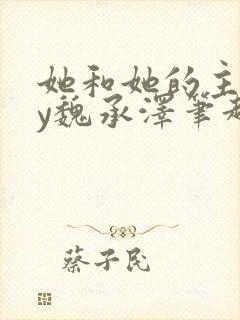 她和她的主
y魏承泽笔趣
蔡子民